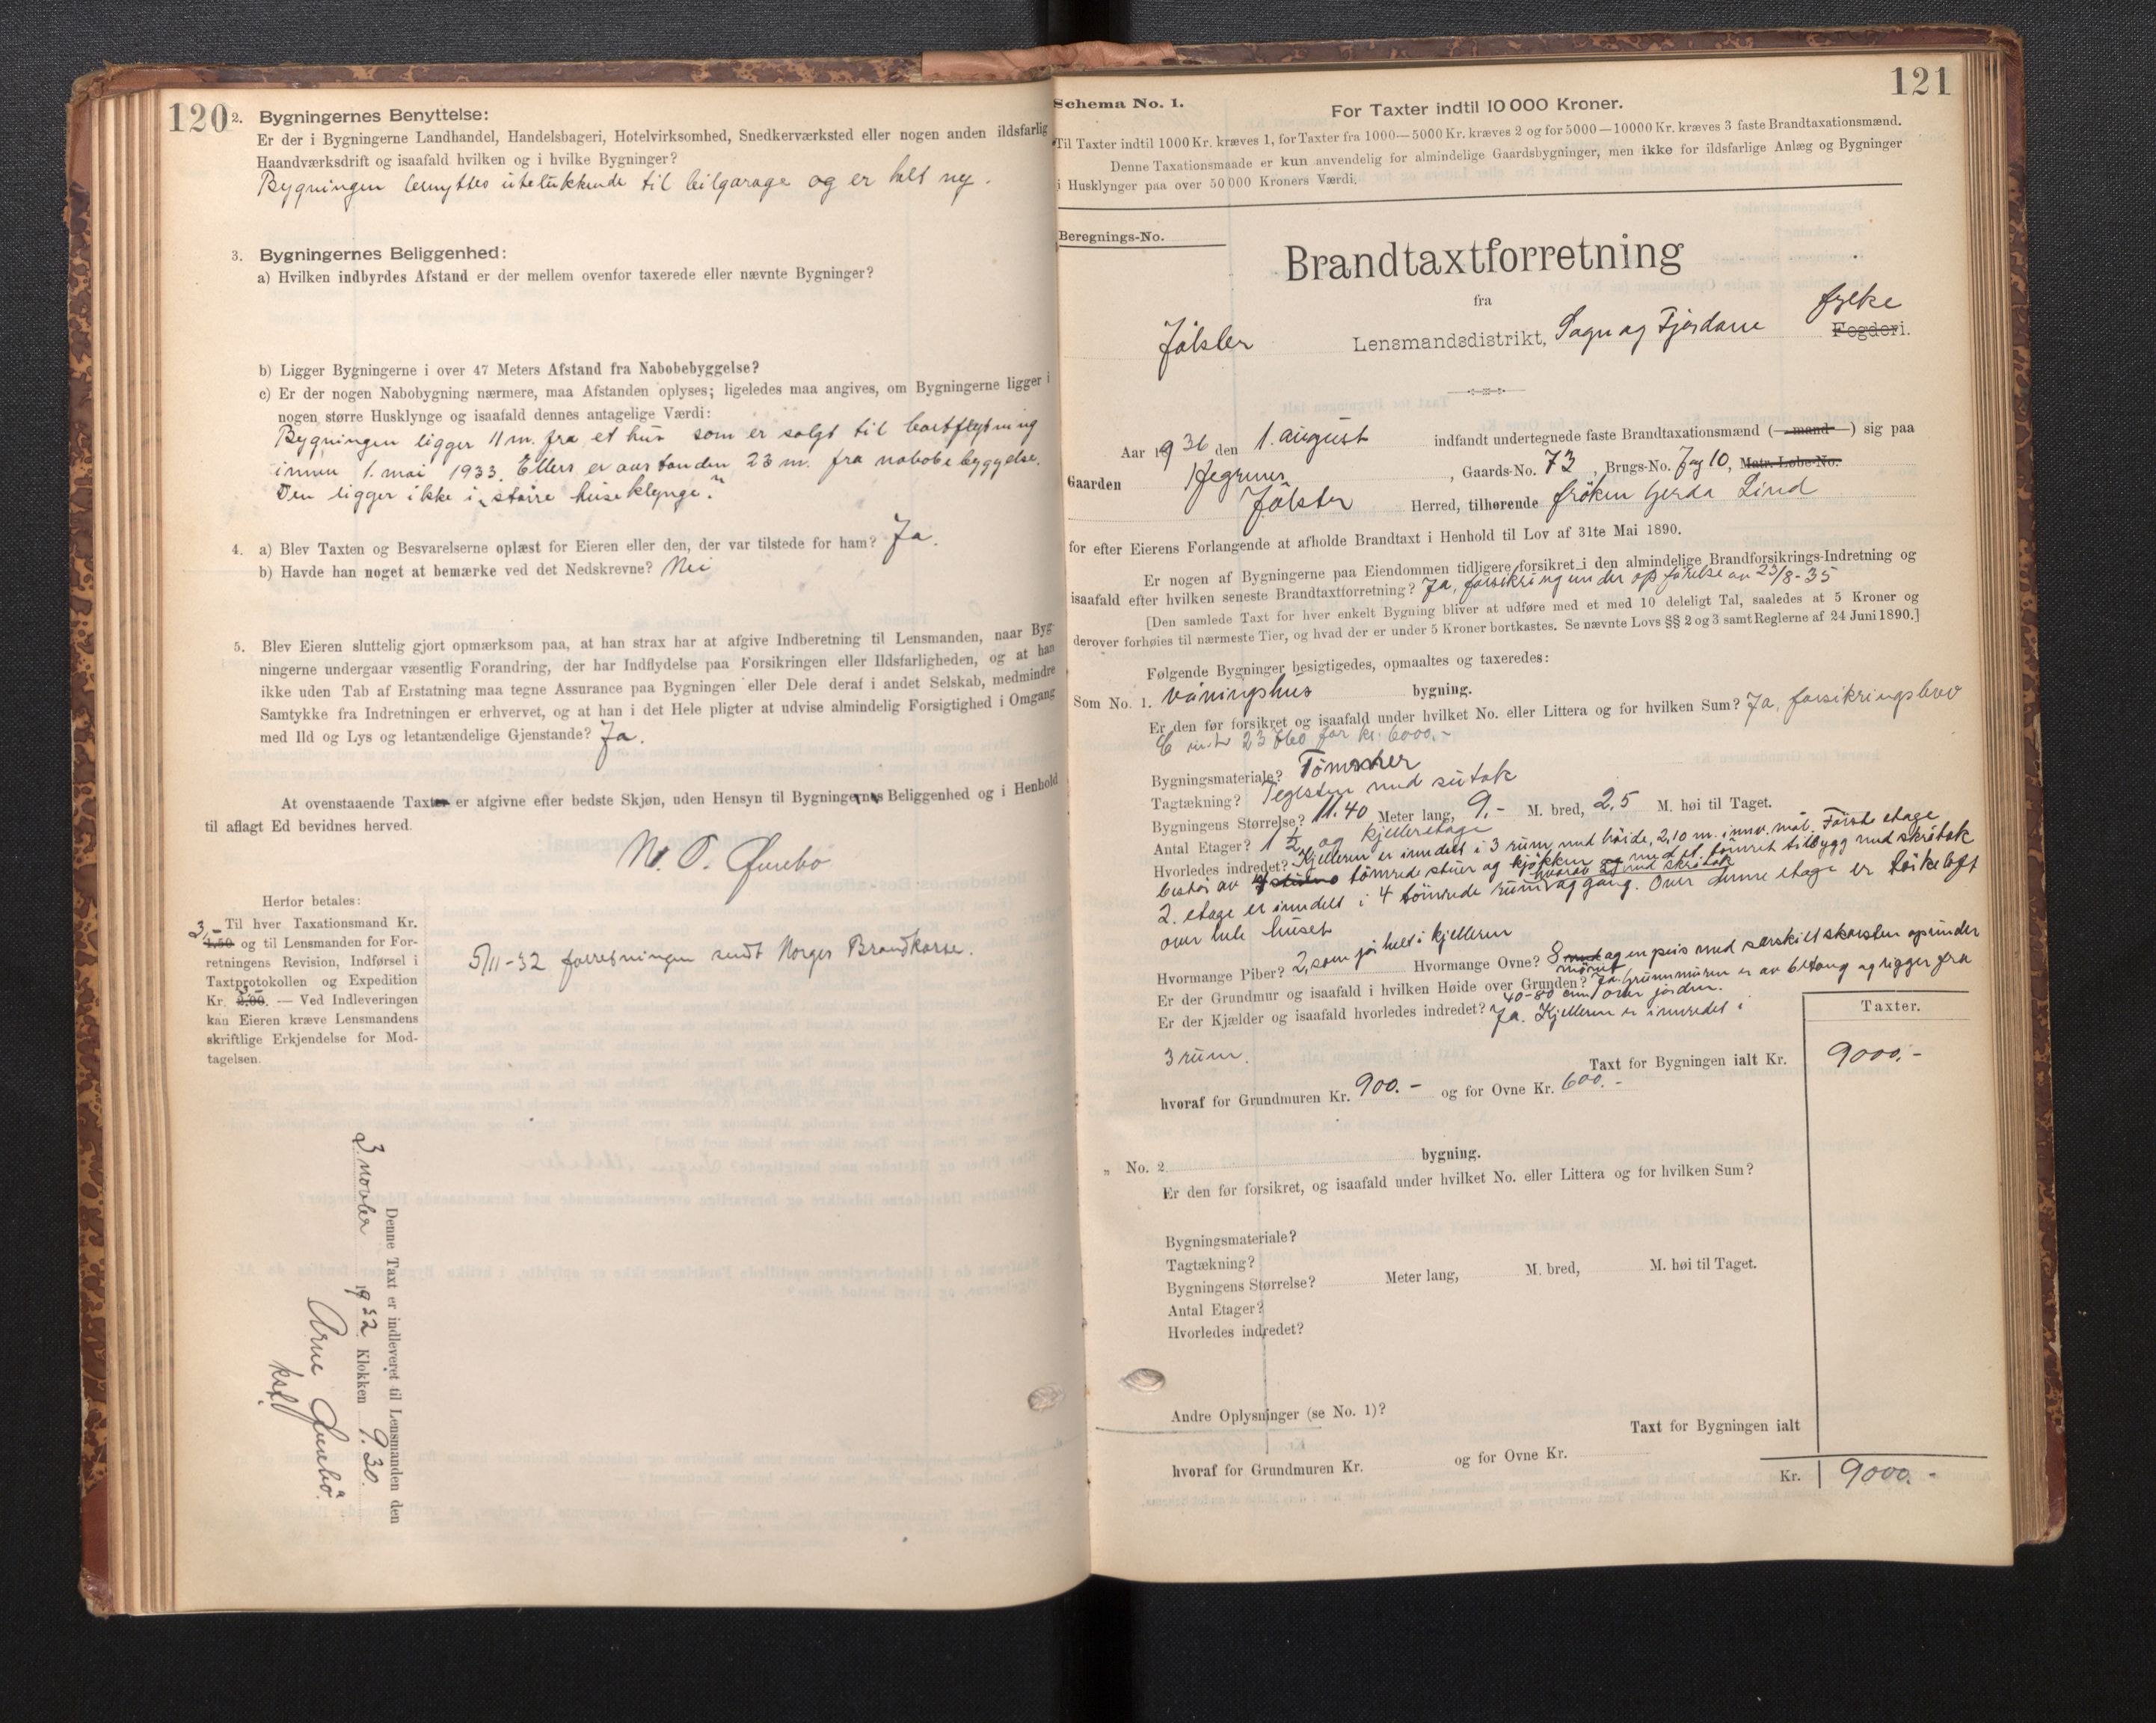 120
2. Bygningernes Benyttelse:
Er der i Bygningerne Landhandel, Handelsbageri, Hotelvirksomhed, Snedkerværksted eller nogen anden ildsfarlig
Haandværksdrift og isaafald hvilken og i hvilke Bygninger?
Bygningen benyttes utelukkende til bilgarage og er helt ny.
3. Bygningernes Beliggenhed:
a) Hvilken indbyrdes Afstand er der mellem ovenfor taxerede eller nævnte Bygninger?
b) Ligger Bygningerne i over 47 Meters Afstand fra Nabobebyggelse?
c) Er der nogen Nabobygning nærmere, maa Afstanden oplyses; ligeledes maa angives, om Bygningerne ligger i
nogen større Husklynge og isaafald dennes antagelige Værdi:
Bygningen ligger 11 m. fra et hus som er solgt til bortflytning
innen 1. mai 1933. Ellers er avstanden 23 m. fra nabobebyggelse.
Den ligger ikke i "større huseklynge."
4. a) Blev Taxten og Besvarelserne oplæst for Eieren eller den, der var tilstede for ham? Ja.
b) Havde han noget at bemærke ved det Nedskrevne? Nei
5. Blev Eieren sluttelig gjort opmærksom paa, at han strax har at afgive Indberetning til Lensmanden, naar Byg-
ningerne undergaar væsentlig Forandring, der har Indflydelse paa Forsikringen eller Ildsfarligheden, og at han
ikke uden Tab af Erstatning maa tegne Assurance paa Bygningen eller Dele deraf i andet Selskab, medmindre
Samtykke fra Indretningen er erhvervet, og at han i det Hele pligter at udvise almindelig Forsigtighed i Omgang
med Ild og Lys og letantændelige Gjenstande? Ja.
At ovenstaaende Taxter er afgivne efter bedste Skjøn, uden Hensyn til Bygningernes Beliggenhed og i Henhold
til aflagt Ed bevidnes herved.
Herfor betales:
3,- Til hver Taxationsmand Kr.
1.50 og til Lensmanden for For-
retningens Revision, Indførsel i
Taxtprotokollen og Expedition
Kr. 2.00. — Ved Indleveringen
kan Eieren kræve Lensmandens
skriftlige Erkjendelse for Mod-
tagelsen.
5/11-32 forretningen sendt Norges Brandkasse.
Denne Taxt er indleveret til Lensmanden den
3 novbr 1932 Klokken 9.30.
Arne
121
Schema No. 1.
For Taxter indtil 10 000 Kroner.
Til Taxter indtil 1000 Kr. kræves 1, for Taxter fra 1000—5000 Kr. kræves 2 og for 5000—10000 Kr. kræves 3 faste Brandtaxationsmænd.
Denne Taxationsmaade er kun anvendelig for almindelige Gaardsbygninger, men ikke for ildsfarlige Anlæg og Bygninger
i Husklynger paa over 50 000 Kroners Værdi.
Beregnings-No.
Brandtaxtforretning
fra
Jølster Lensmandsdistrikt, Sogn og Fjordane fylke Fogderi.
Aar 1936 den 1. august indfandt undertegnede faste Brandtaxationsmænd (mand) sig paa
Gaarden Hegrenes, Gaards-No. 73, Brugs-No. 7 og 10, Matr.-Løbe-No.
Jølster Herred, tilhørende frøken Gerda Lind
for efter Eierens Forlangende at afholde Brandtaxt i Henhold til Lov af 31te Mai 1890.
Er nogen af Bygningerne paa Eiendommen tidligere forsikret i den almindelige Brandforsikrings-Indretning og
isaafald efter hvilken seneste Brandtaxtforretning? Ja, forsikring under opførelse av 23/8-35
[Den samlede Taxt for hver enkelt Bygning bliver at udføre med et med 10 deleligt Tal, saaledes at 5 Kroner og
derover forhøies til nærmeste Tier, og hvad der er under 5 Kroner bortkastes. Se nævnte Lovs §§ 2 og 3 samt Reglerne af 24 Juni 1890.]
Følgende Bygninger besigtigedes, opmaaltes og taxeredes:
Som No. 1. Våningshus bygning.
Er den før forsikret og isaafald under hvilket No. eller Littera og for hvilken Sum? Ja, forsikringsbev
for kr. 6000,-
Bygningsmateriale? Tømmer
Tagtækning? Teglsten med sutak
Bygningens Størrelse? 11.40 Meter lang, 9,- M. bred, 2,5 M. høi til Taget.
Antal Etager? 1 1/2 og kjelleretage
Hvorledes indret? Kjelleren er inndelt i 3 rum med høide, 2,10 m. innv. mål. Første etage
består av tømrede stuer og kjøkken og med et tømret tilbygg med skråtak
hvorav 2 med skråtak
2. etage er inndelt i 4 tømrede rum og gang. Over denne etage er tørkeloft
over hele huset
Hvormange Piber? 2, som går helt i kjelleren Hvormange Ovne? 8 og en peis med særskilt skorsten
Er der Grundmur og isaafald i hvilken Høide over Grunden? Ja. grunnmuren er av betong og rigger fra
40-80 cm over jorden.
Er der Kjælder og isaafald hvorledes indredet? Ja. Kjelleren er innredet i
3 rum.
Taxter.
Taxt for Bygningen ialt Kr. 9000.-
hvoraf for Grundmuren Kr. 900.- og for Ovne Kr. 600.-
„ No. 2 bygning.
Er den før forsikret, og isaafald under hvilket No. eller Littera og for hvilken Sum?
Bygningsmateriale?
Tagtækning?
Bygningens Størrelse? Meter lang, M. bred, M. høi til Taget.
Antal Etager?
Hvorledes indredet?
Andre Oplysninger (se No. 1)?
Taxt for Bygningen ialt
hvoraf for Grundmuren Kr. og for Ovne Kr.
Kr. 9000.-